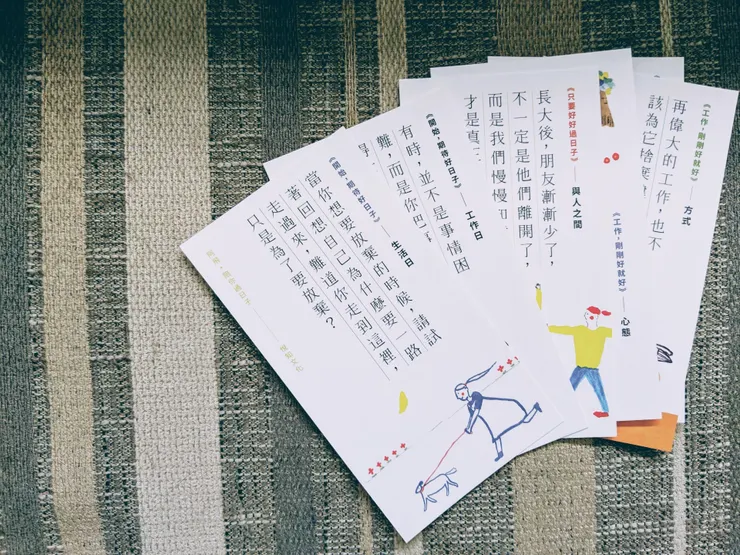 《工作，剛剛好就好》——方式
再偉大的工作，也不
該為它捨棄
《工作，剛剛好就好》——心態
《只要好好過日子》——與人之間
長大後，朋友漸漸少了，
不一定是他們離開了，
而是我們慢慢
才是真
《開始，期待好日子》——工作日
有時，並不是事情困
難，而是你
《開始，期待好日子》——生活日
當你想要放棄的時候，請試
著回想自己為什麼要一路
走過來，難道你走到這裡，
只是為了要放棄？